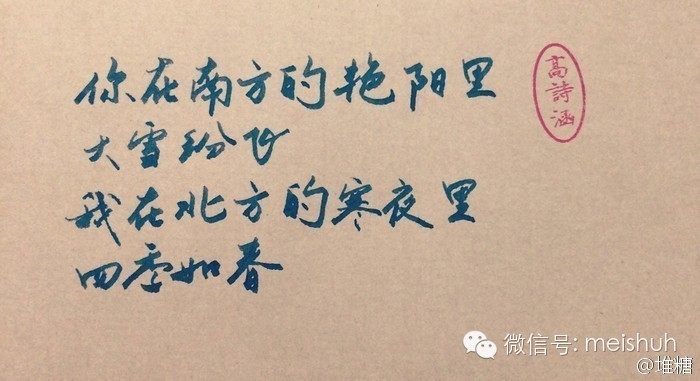 你在南方的艳阳里
大雪纷飞
我在北方的寒夜里
四季如春
高詩涵
微信号: meishuh
@堆糖